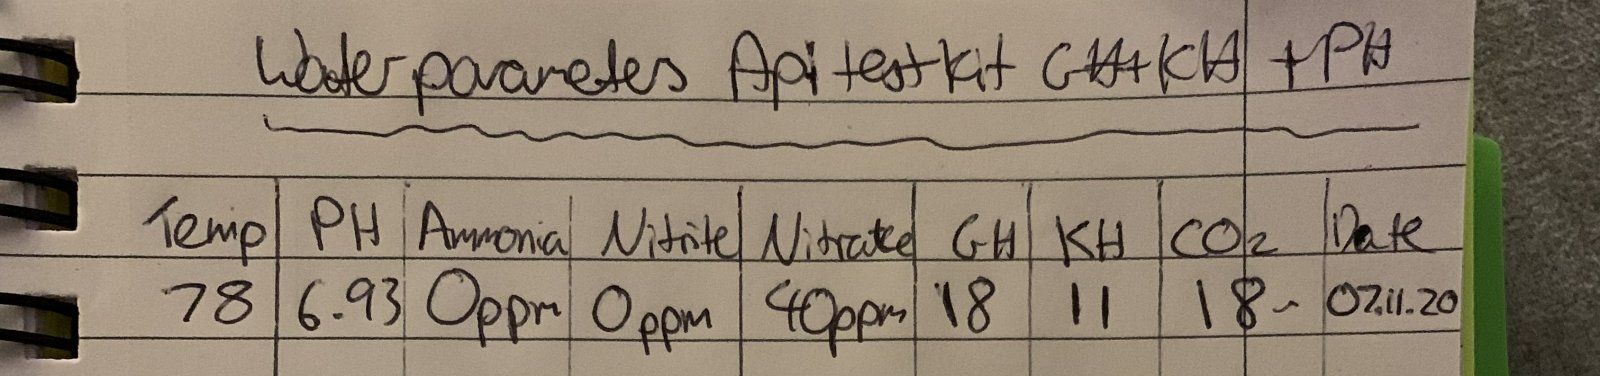 Water parameters Api test kit GH+KH + PH
Temp PH Ammonia Nitrite Nitrate GH KH CO2 Date
78 6.93 0ppm 0ppm 40ppm 18 11 18~ 07.11.20